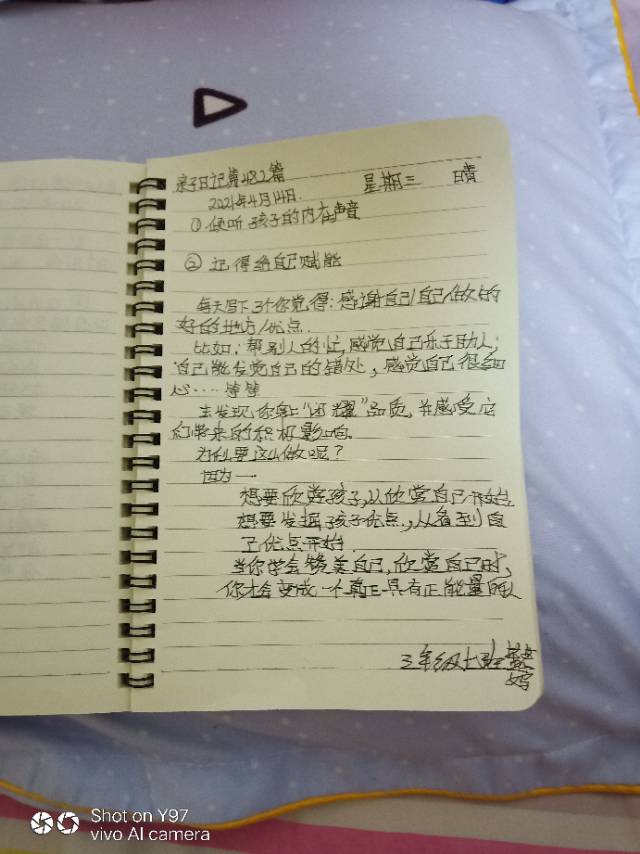 亲子日记第482篇
2021年4月14日. 星期三 晴
①倾听孩子的内在声音
②记得给自己赋能
每天写下3个你觉得:感谢自己/自己做的
好的地方/优点.
比如:帮别人的忙,感觉自己乐于助人;
自己能发觉自己的错处,感觉自己很细
心……等等
去发现你身上“闪耀”品质,并感受它
们带来的积极影响。
为什么要这么做呢?
因为——
想要欣赏孩子,从欣赏自己开始
想要发掘孩子优点,从看到自
己优点开始.
当你学会赞美自己,欣赏自己时,
你才会变成一个真正具有正能量的人
三年级七班
妈
Shot on Y97
vivo AI camera